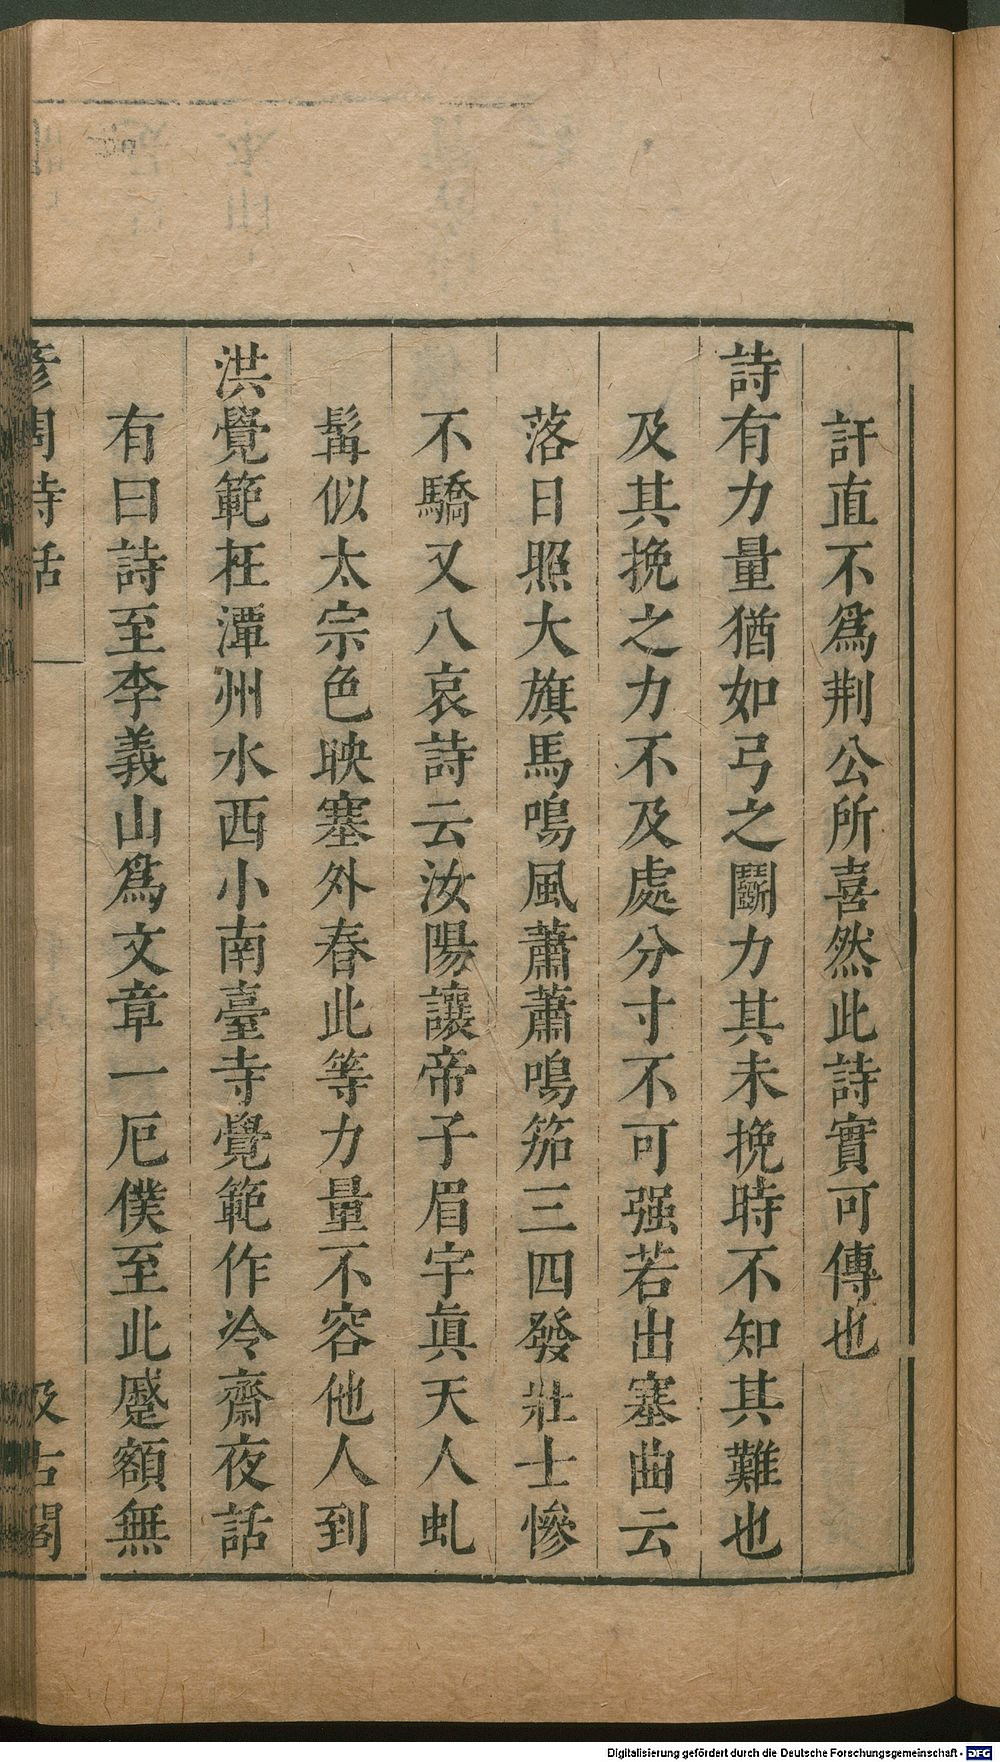 訐直不爲荆公所喜然此詩實可傳也
詩有力量猶如弓之鬭力其未挽時不知其難也
及其挽之力不及處分寸不可强若出塞曲云
落日照大旗馬鳴風蕭蕭鳴笳三四發壯士慘
不驕又八哀詩云汝陽讓帝子眉宇眞天人虬
髯似太宗色映塞外春此等力量不容他人到
洪覺範在潭州水西小南臺寺覺範作冷齋夜話
有曰詩至李義山爲文章一厄僕至此蹙額無
彦周詩話
汲古閣
Digitalisierung gefördert durch die Deutsche Forschungsgemeinschaft - DFG